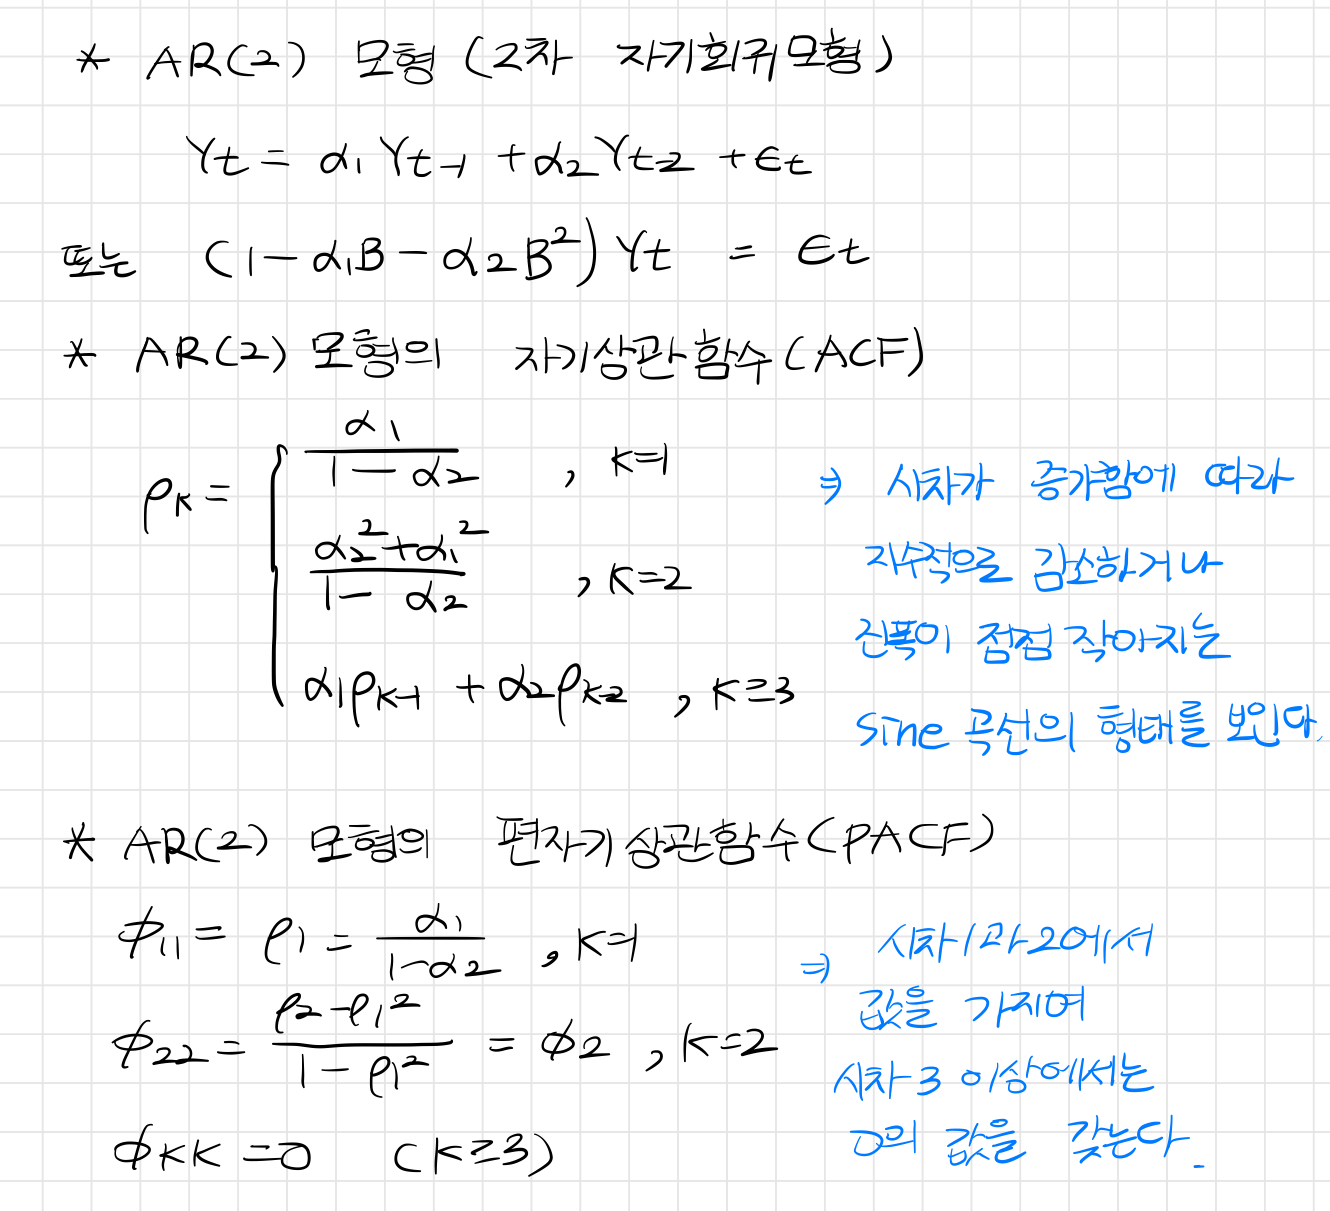 * AR(2) 모형 (2차 자기회귀모형)
Yt = α₁Yt-1 + α₂Yt-2 + εt
또는 (1-α₁B-α₂B²)Yt = εt
* AR(2) 모형의 자기상관함수(ACF)
ρκ = { α₁ / (1-α₂) , k=1
(α₂²+α₁²) / (1-α₂) , k=2
α₁ρk-1 + α₂ρk-2 , k≥3
⇒ 시차가 증가함에 따라
지수적으로 감소하거나
진폭이 점점 작아지는
Sine 곡선의 형태를 보인다.
* AR(2) 모형의 편자기상관함수(PACF)
φ₁₁ = ρ₁ = α₁ / (1-α₂) , k=1
φ₂₂ = (ρ₂-ρ₁²) / (1-ρ₁²) = φ₂ , k=2
φkk = 0 (k≥3)
⇒ 시차 1과 2에서
값을 가지며
시차 3 이상에서는
0의 값을 갖는다.